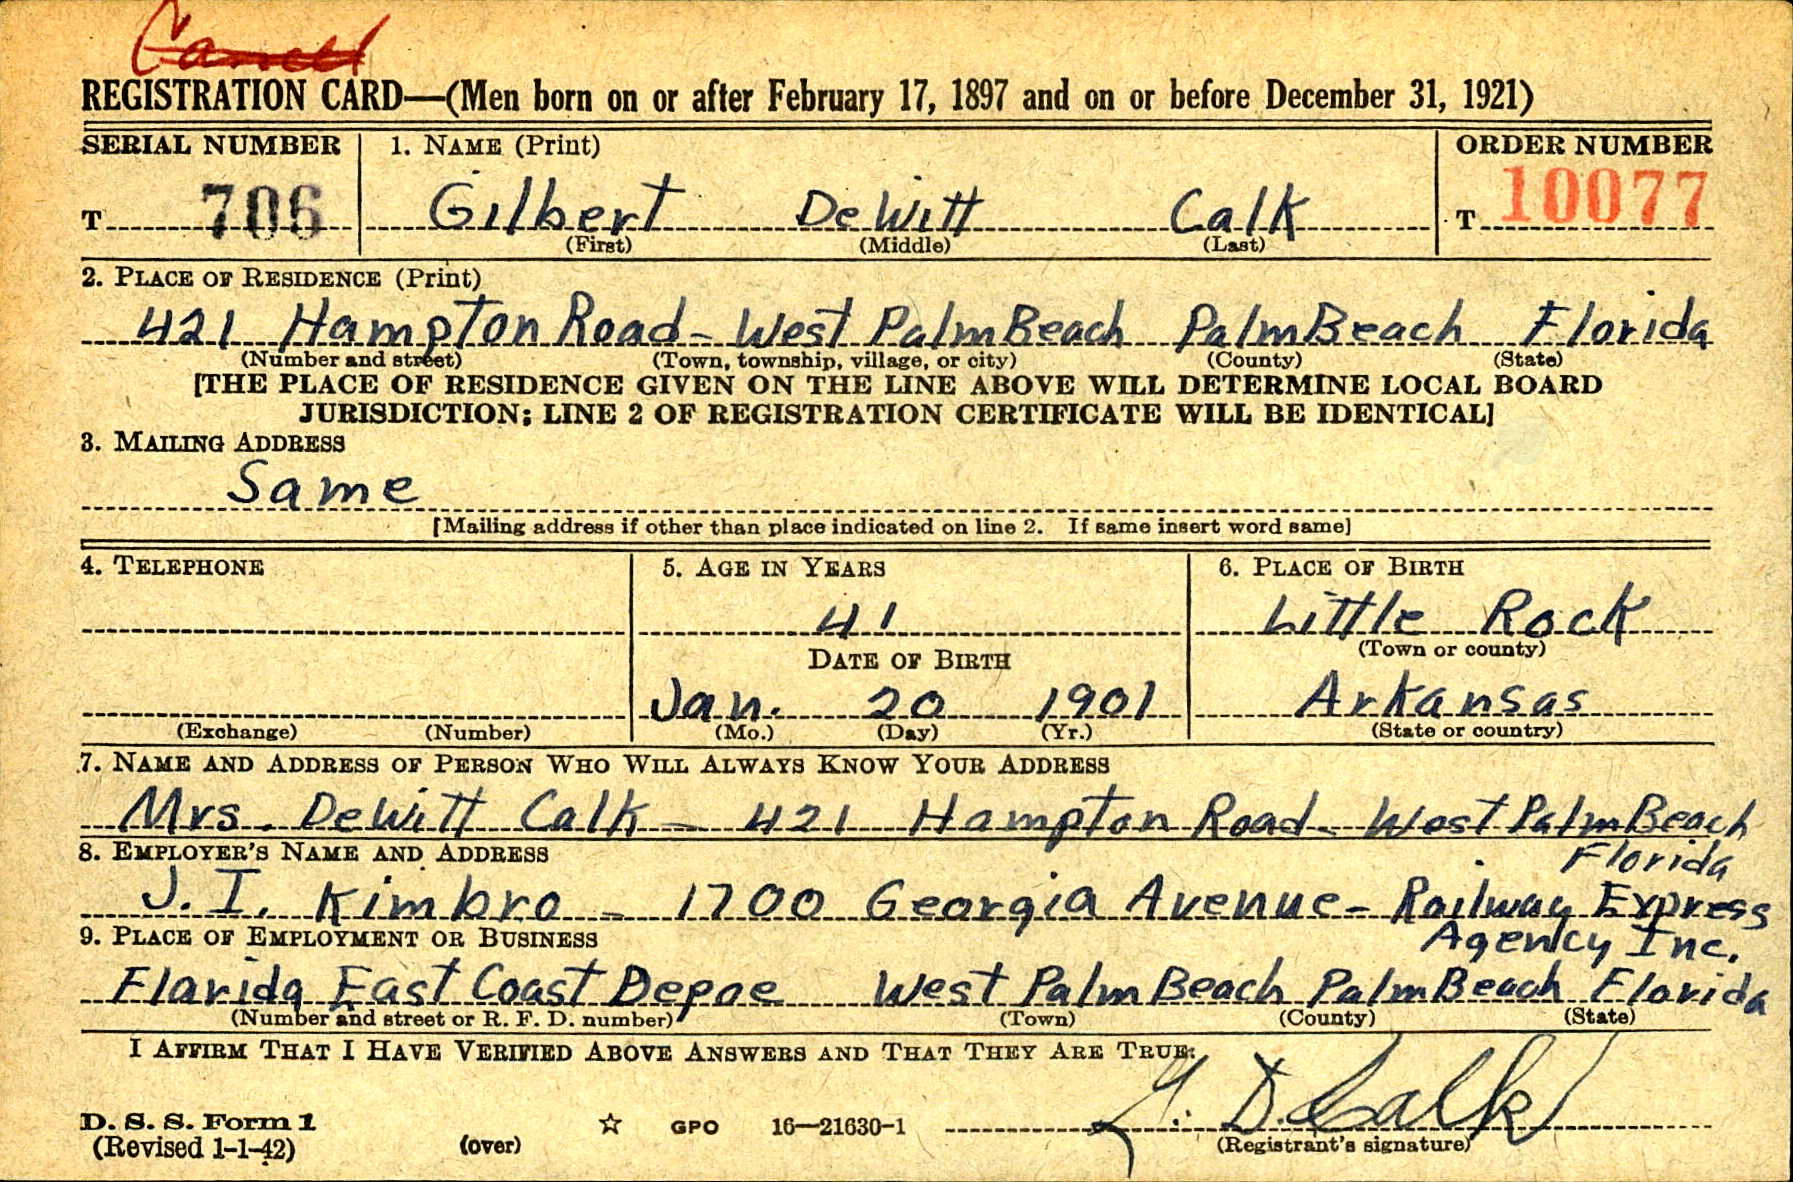 Cancel
REGISTRATION CARD—(Men born on or after February 17, 1897 and on or before December 31, 1921)
SERIAL NUMBER 1. NAME (Print) ORDER NUMBER
T 706 Gilbert DeWitt Calk T 10077
(First) (Middle) (Last)
2. PLACE OF RESIDENCE (Print)
421 Hampton Road - West Palm Beach Palm Beach Florida
(Number and street) (Town, township, village, or city) (County) (State)
[THE PLACE OF RESIDENCE GIVEN ON THE LINE ABOVE WILL DETERMINE LOCAL BOARD
JURISDICTION; LINE 2 OF REGISTRATION CERTIFICATE WILL BE IDENTICAL]
3. MAILING ADDRESS
Same
[Mailing address if other than place indicated on line 2. If same insert word same]
4. TELEPHONE 5. AGE IN YEARS 6. PLACE OF BIRTH
41 Little Rock
DATE OF BIRTH (Town or county)
Jan. 20 1901 Arkansas
(Exchange) (Number) (Mo.) (Day) (Yr.) (State or country)
7. NAME AND ADDRESS OF PERSON WHO WILL ALWAYS KNOW YOUR ADDRESS
Mrs. DeWitt Calk - 421 Hampton Road - West Palm Beach
8. EMPLOYER'S NAME AND ADDRESS Florida
J. I. Kimbro - 1700 Georgia Avenue - Railway Express
9. PLACE OF EMPLOYMENT OR BUSINESS Agency Inc.
Florida East Coast Depoe West Palm Beach Palm Beach Florida
(Number and street or R. F. D. number) (Town) (County) (State)
I AFFIRM THAT I HAVE VERIFIED ABOVE ANSWERS AND THAT THEY ARE TRUE.
G. D. Calk
D. S. S. Form 1
(Revised 1-1-42) (over) ☆ GPO 16—21630-1 (Registrant's signature)